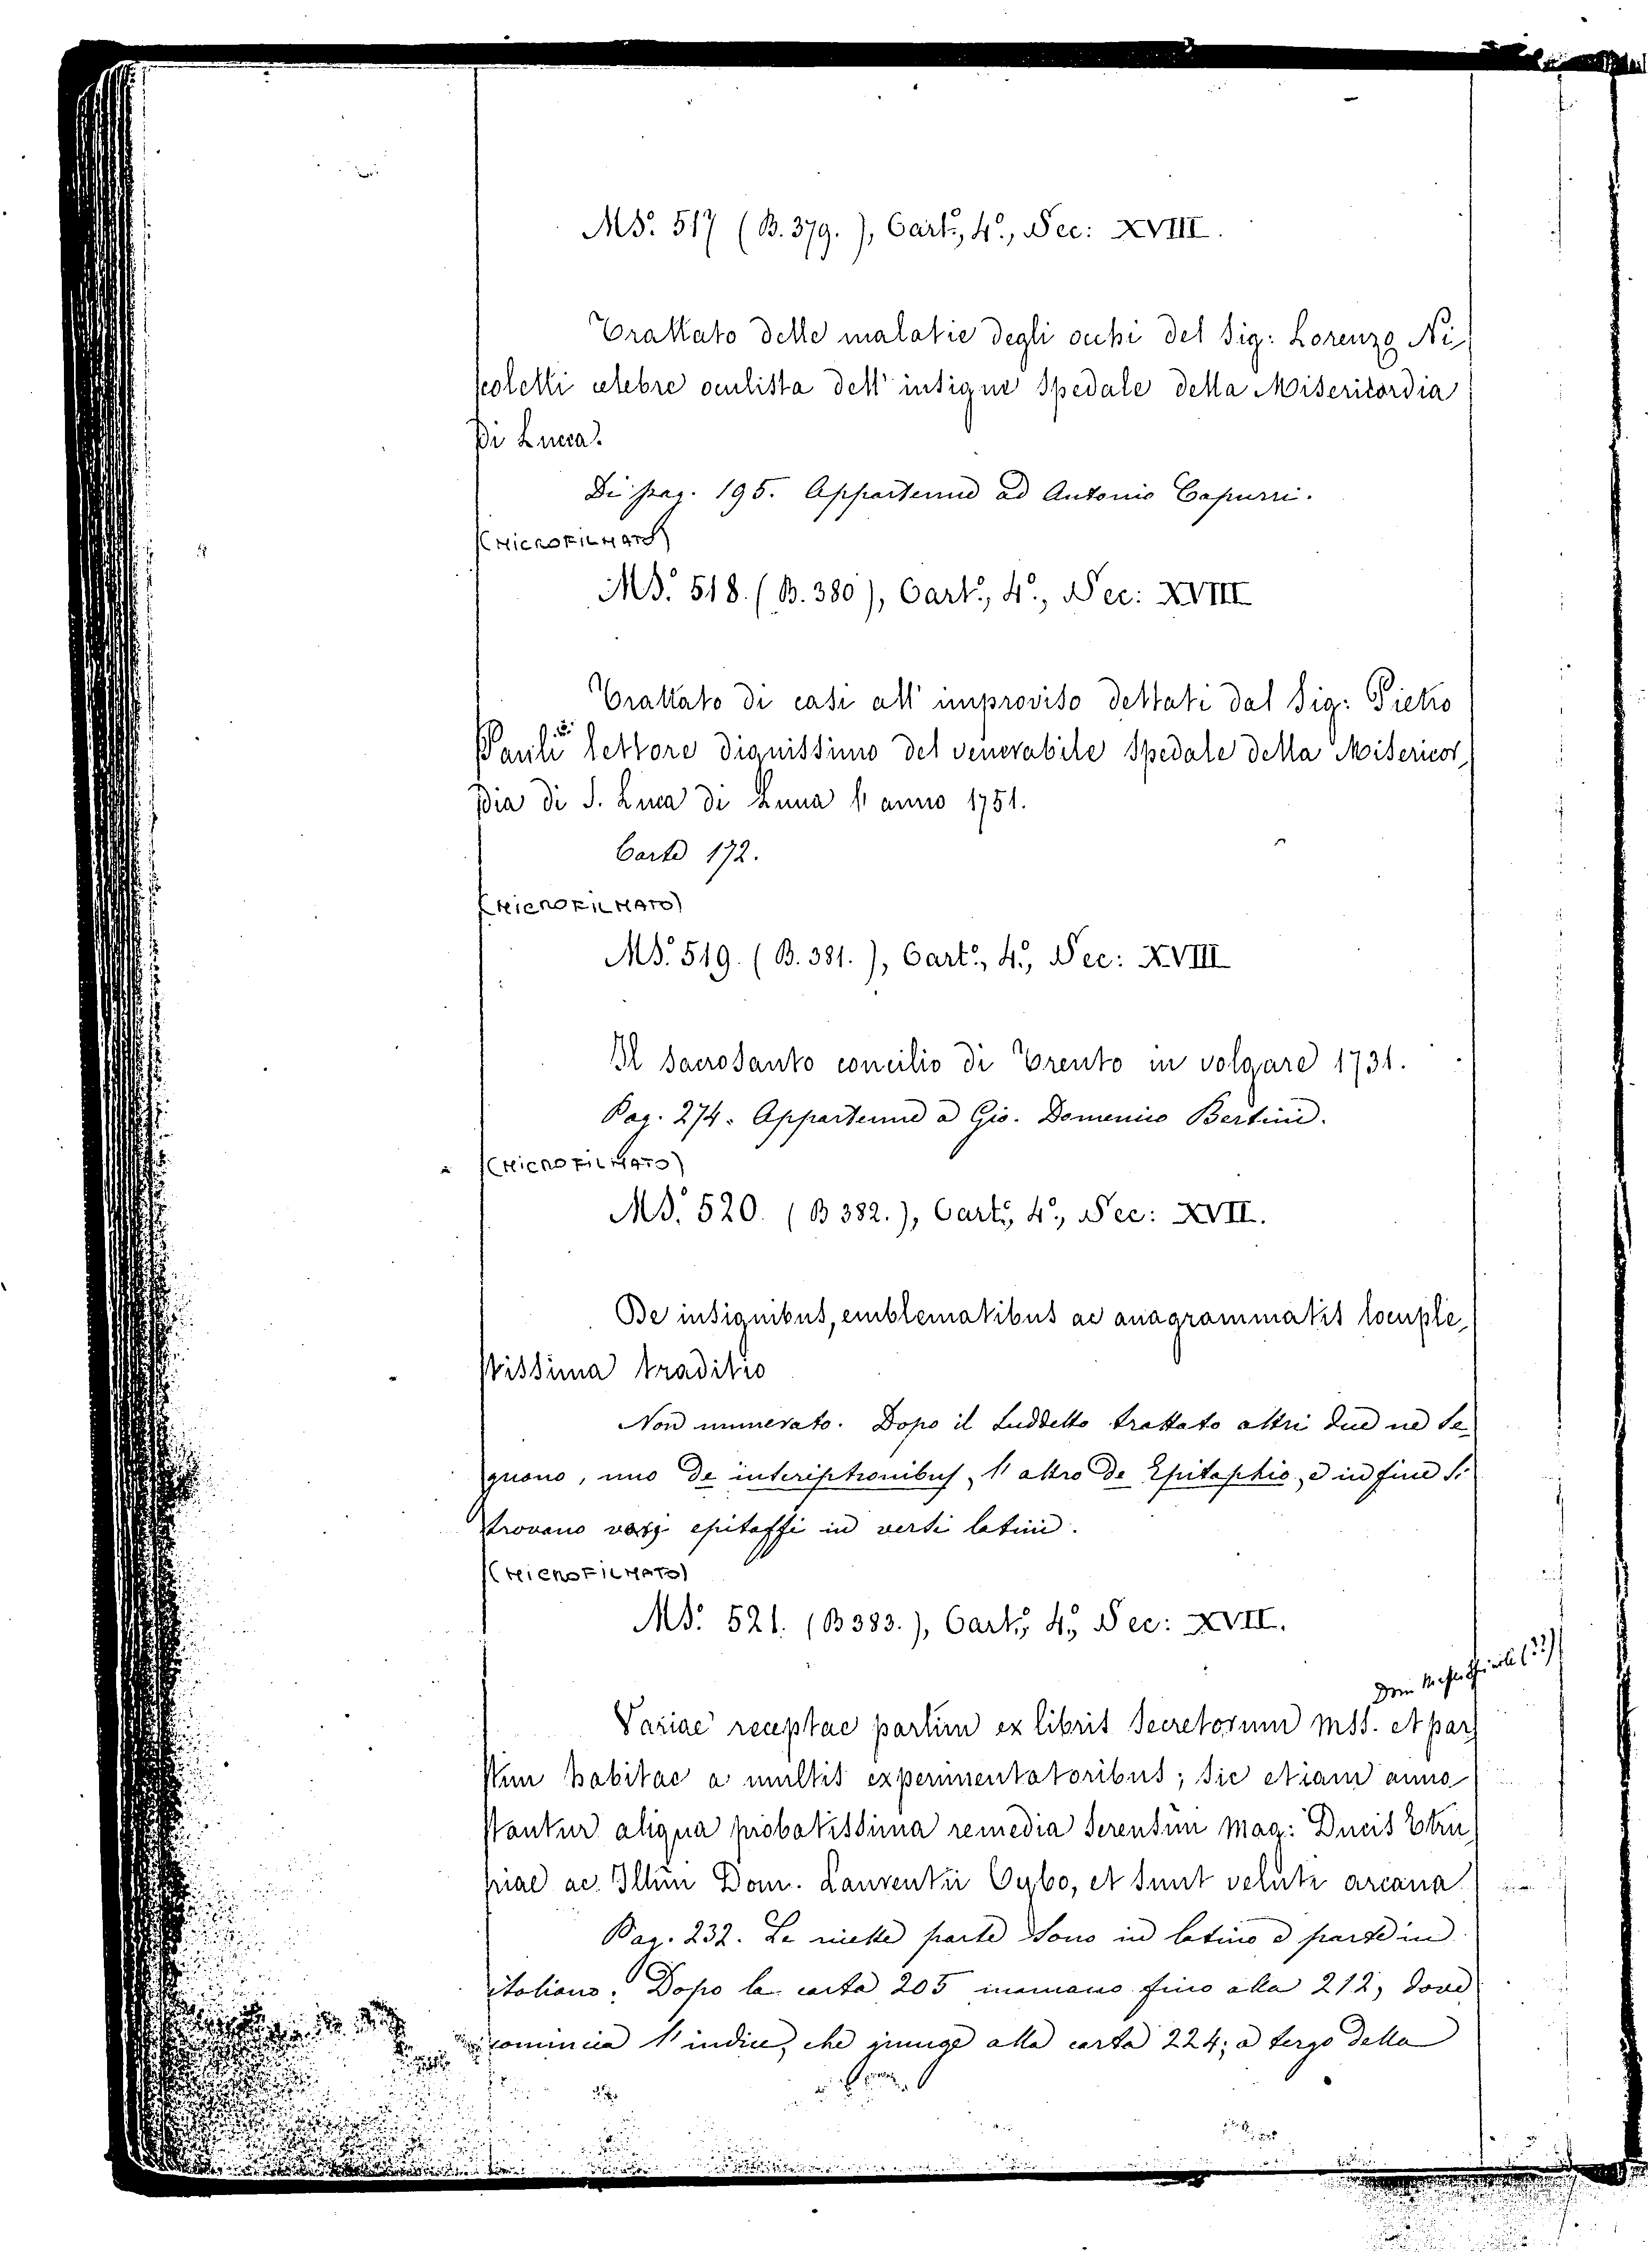 MS.º 517 (B. 379.), Cart.º, 4.º, Sec: XVIII.
Trattato delle malatie degli occhi del Sig: Lorenzo Ni
coletti celebre oculista dell' insigne Spedale della Misericordia
di Lucca.
Di pag. 195. Appartenne ad Antonio Capurri.
(MICROFILMATO)
MS.º 518. (B. 380), Cart.º, 4.º, Sec: XVIII
Trattato di casi all' improviso dettati dal Sig: Pietro
Pauli lettore dignissimo del venerabile Spedale della Misericor
dia di S. Luca di Lucca l'anno 1751.
Carte 172.
(MICROFILMATO)
MS.º 519. (B. 381.), Cart.º, 4.º, Sec: XVIII
Il Sacrosanto concilio di Trento in volgare 1731.
Pag. 274. Appartenne a Gio. Domenico Bertini.
(MICROFILMATO)
MS.º 520. (B 382.), Cart.º, 4.º, Sec: XVII.
De insignibus, emblematibus ac anagrammatis locuple
tissima traditio
Non numerato. Dopo il suddetto trattato altri due ne se
guono, uno de inscriptionibus, l'altro de Epitaphio, e in fine si
trovano varj epitaffi in versi latini.
(MICROFILMATO)
MS.º 521. (B 383.), Cart.º, 4.º, Sec: XVII.
Variae receptae partim ex libris Secretorum mss. et par
tim habitae a multis experimentatoribus; sic etiam anno
tantur aliqua probatissima remedia Serenssimi Mag: Ducis Etru
riae ac Illmi Dom. Laurentii Cybo, et sunt veluti arcana
Pag. 232. Le ricette parte sono in latino e parte in
italiano. Dopo la carta 205 mancano fino alla 212, dove
comincia l'indice, che giunge alla carta 224; a tergo della